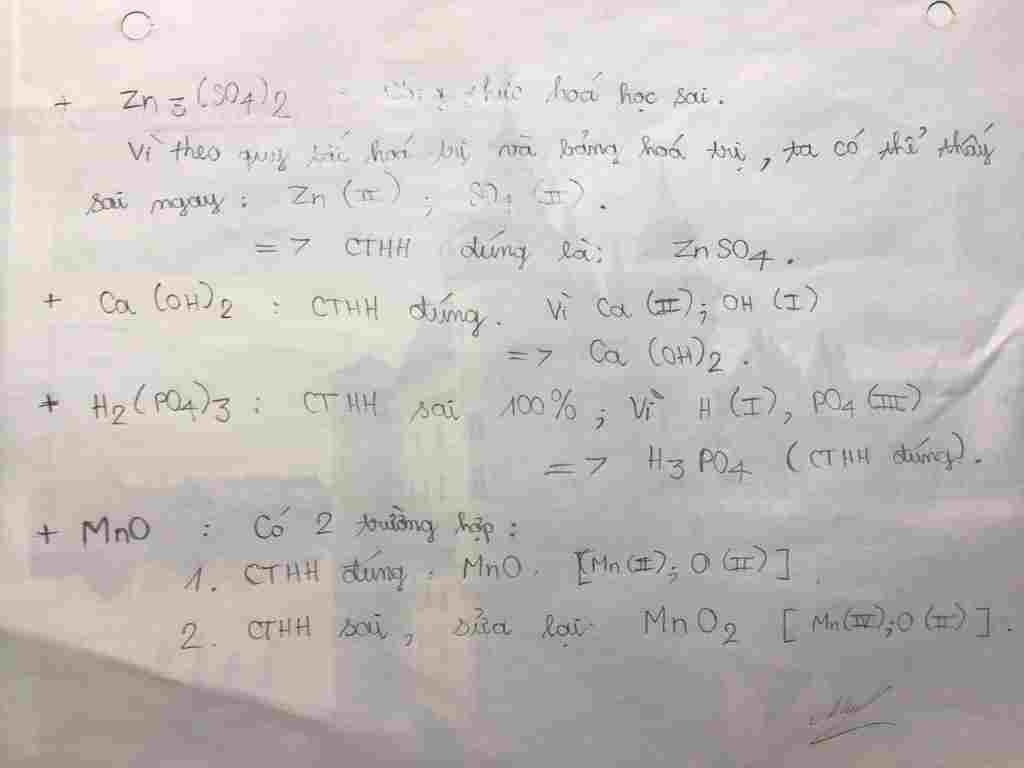 + Zn3(SO4)2 - thức hoá học sai.
Vì theo quy tắc hoá trị và bảng hoá trị, ta có thể thấy
sai ngay: Zn (II); SO4 (II).
=> CTHH đúng là: ZnSO4.
+ Ca (OH)2 : CTHH đúng. Vì Ca (II); OH (I)
=> Ca (OH)2.
+ H2(PO4)3 : CTHH sai 100%; Vì H (I), PO4 (III)
=> H3PO4 (CTHH đúng).
+ MnO : Có 2 trường hợp:
1. CTHH đúng: MnO. [Mn(II); O (II)]
2. CTHH sai, sửa lại: MnO2 [Mn(IV);O (II)].